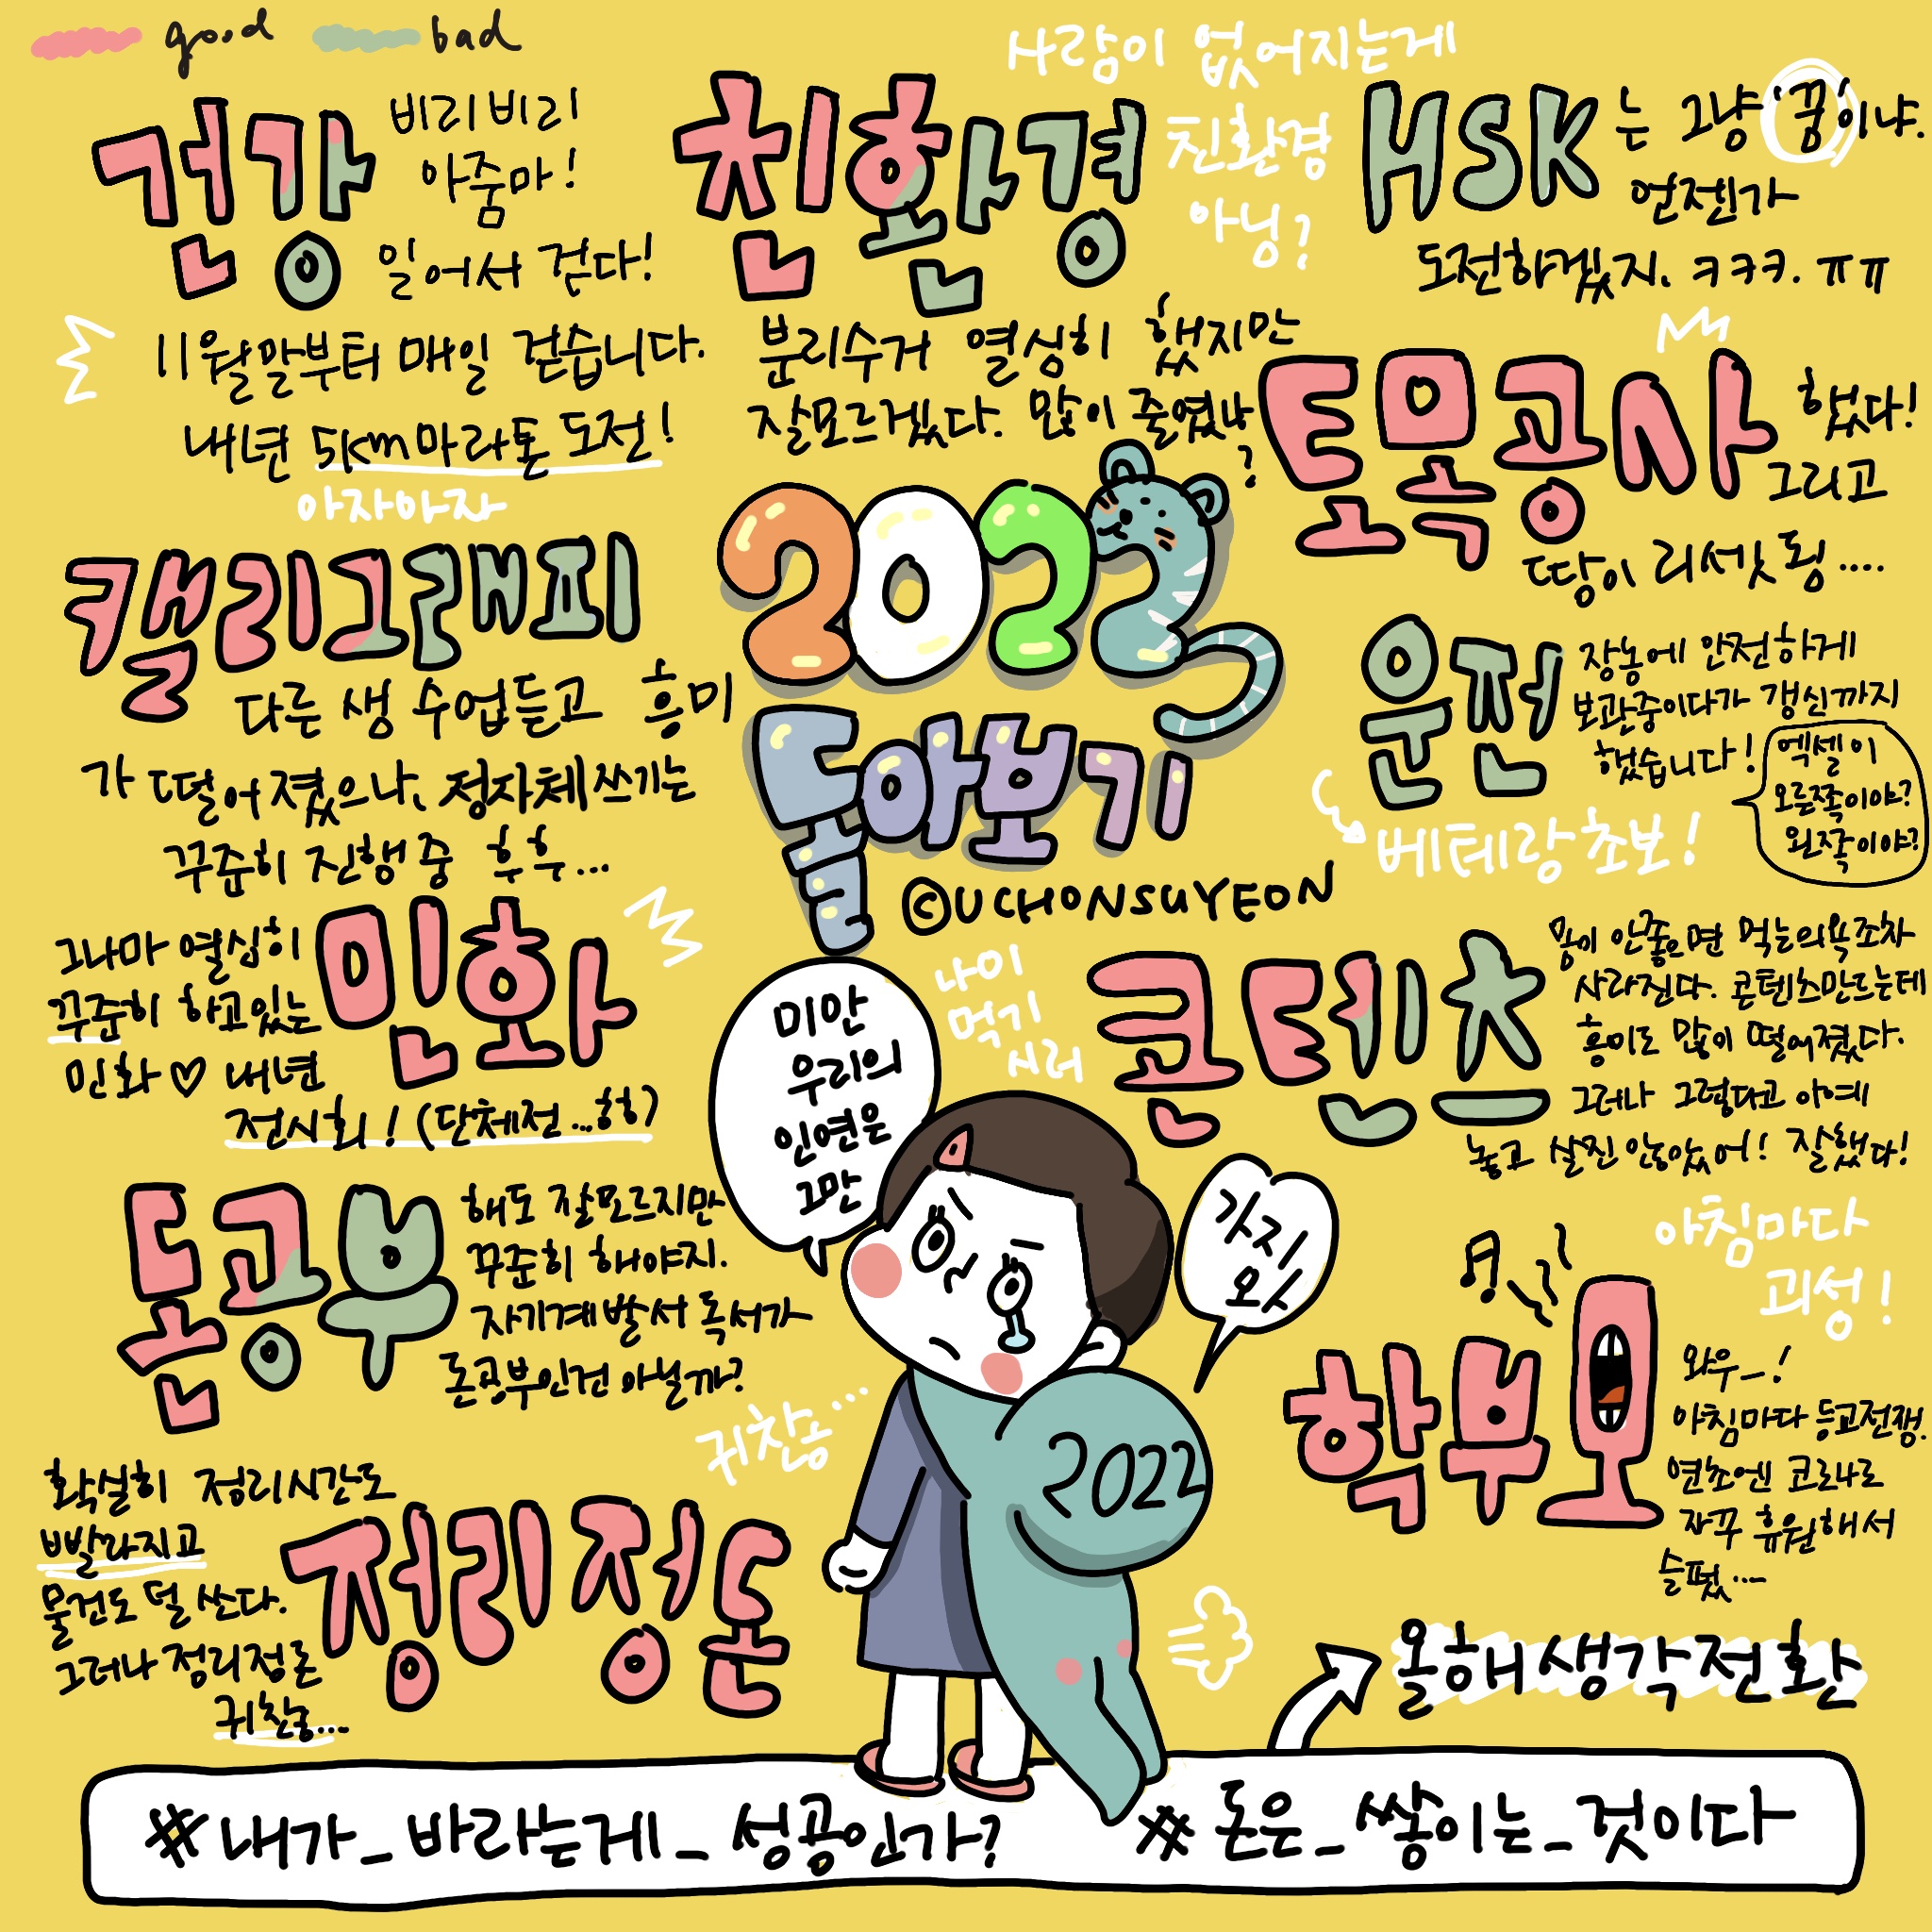 good
bad
건강
비리비리
아줌마!
일어서 걷다!
11월말부터 매일 걷습니다.
내년 5km마라톤 도전!
아자아자
친환경
사람이 없어지는게
친환경
아닝?
분리수거 열심히 했지만
잘모르겠다. 많이 줄였나
?
HSK는 그냥 '꿈'이냐.
언젠가
도전하겠지. ㅋㅋㅋ. ㅠㅠ
토목공사 했다!
그리고
땅이 리셋 됭....
캘리그래피
다른 생 수업듣고 흥미
가 떨어졌으나, 정자체쓰기는
꾸준히 진행중 후후...
2022
돌아보기
©UCHONSUYEON
운전
장농에 안전하게
보관중이다가 갱신까지
했습니다!
엑셀이
오른쪽이야?
왼쪽이야?
베테랑초보!
민화
그나마 열심히
꾸준히 하고있는
민화♡ 내년
전시회! (단체전...힝)
미안
우리의
인연은
그만
나이
먹기
시러
콘텐츠
몸이 안좋으면 먹는의욕조차
사라진다. 콘텐츠만드는데
흥미도 많이 떨어졌다.
그러나 그렇다고 아예
놓고 살진 않았어! 잘했다!
돈공부
해도 잘모르지만
꾸준히 해야지.
자기계발서 독서가
돈공부인건 아닐까?
가지
오ㅅ
2022
아침마다
괴성!
학부모
와우_!
아침마다 등교전쟁.
연초엔 코로나로
자꾸 휴원해서
슬펐...
귀찮...
정리정돈
확실히 정리시간도
빨라지고
물건도 덜 산다.
그러나 정리정돈
귀찮...
올해생각전환
#내가_바라는게_성공인가? #돈은_쌓이는_것이다